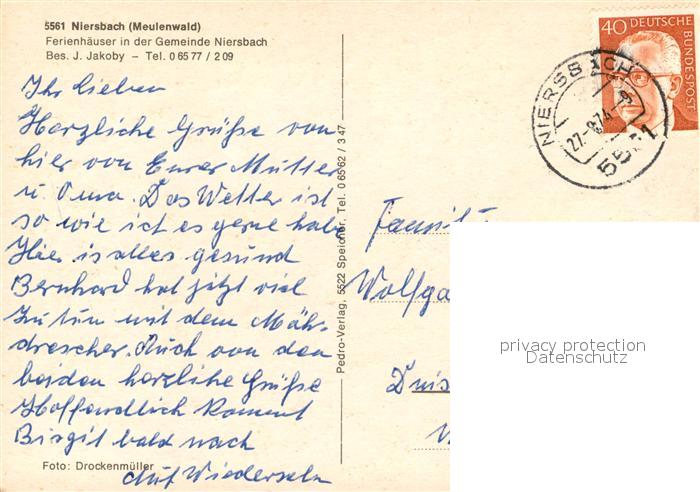 5561 Niersbach (Meulenwald)
Ferienhäuser in der Gemeinde Niersbach
Bes. J. Jakoby – Tel. 06577 / 209
Ihr Lieben
Herzliche Grüße von
hier von Eurer Mutter
u. Oma. Das Wetter ist
so wie ich es gerne habe
Hier is alles gesund
Bernhard hat jetzt viel
zu tun mit dem Mäh-
drescher. Auch von den
beiden herzliche Grüße
Hoffendlich kommt
Birgit bald nach
Auf Wiedersehn
Foto: Drockenmüller
Pedro-Verlag, 5522 Speicher, Tel. 06562 / 347
40 DEUTSCHE
BUNDESPOST
NIERSBACH
27.-8.74
5561
Familie
Wolfga
Duis
privacy protection
Datenschutz